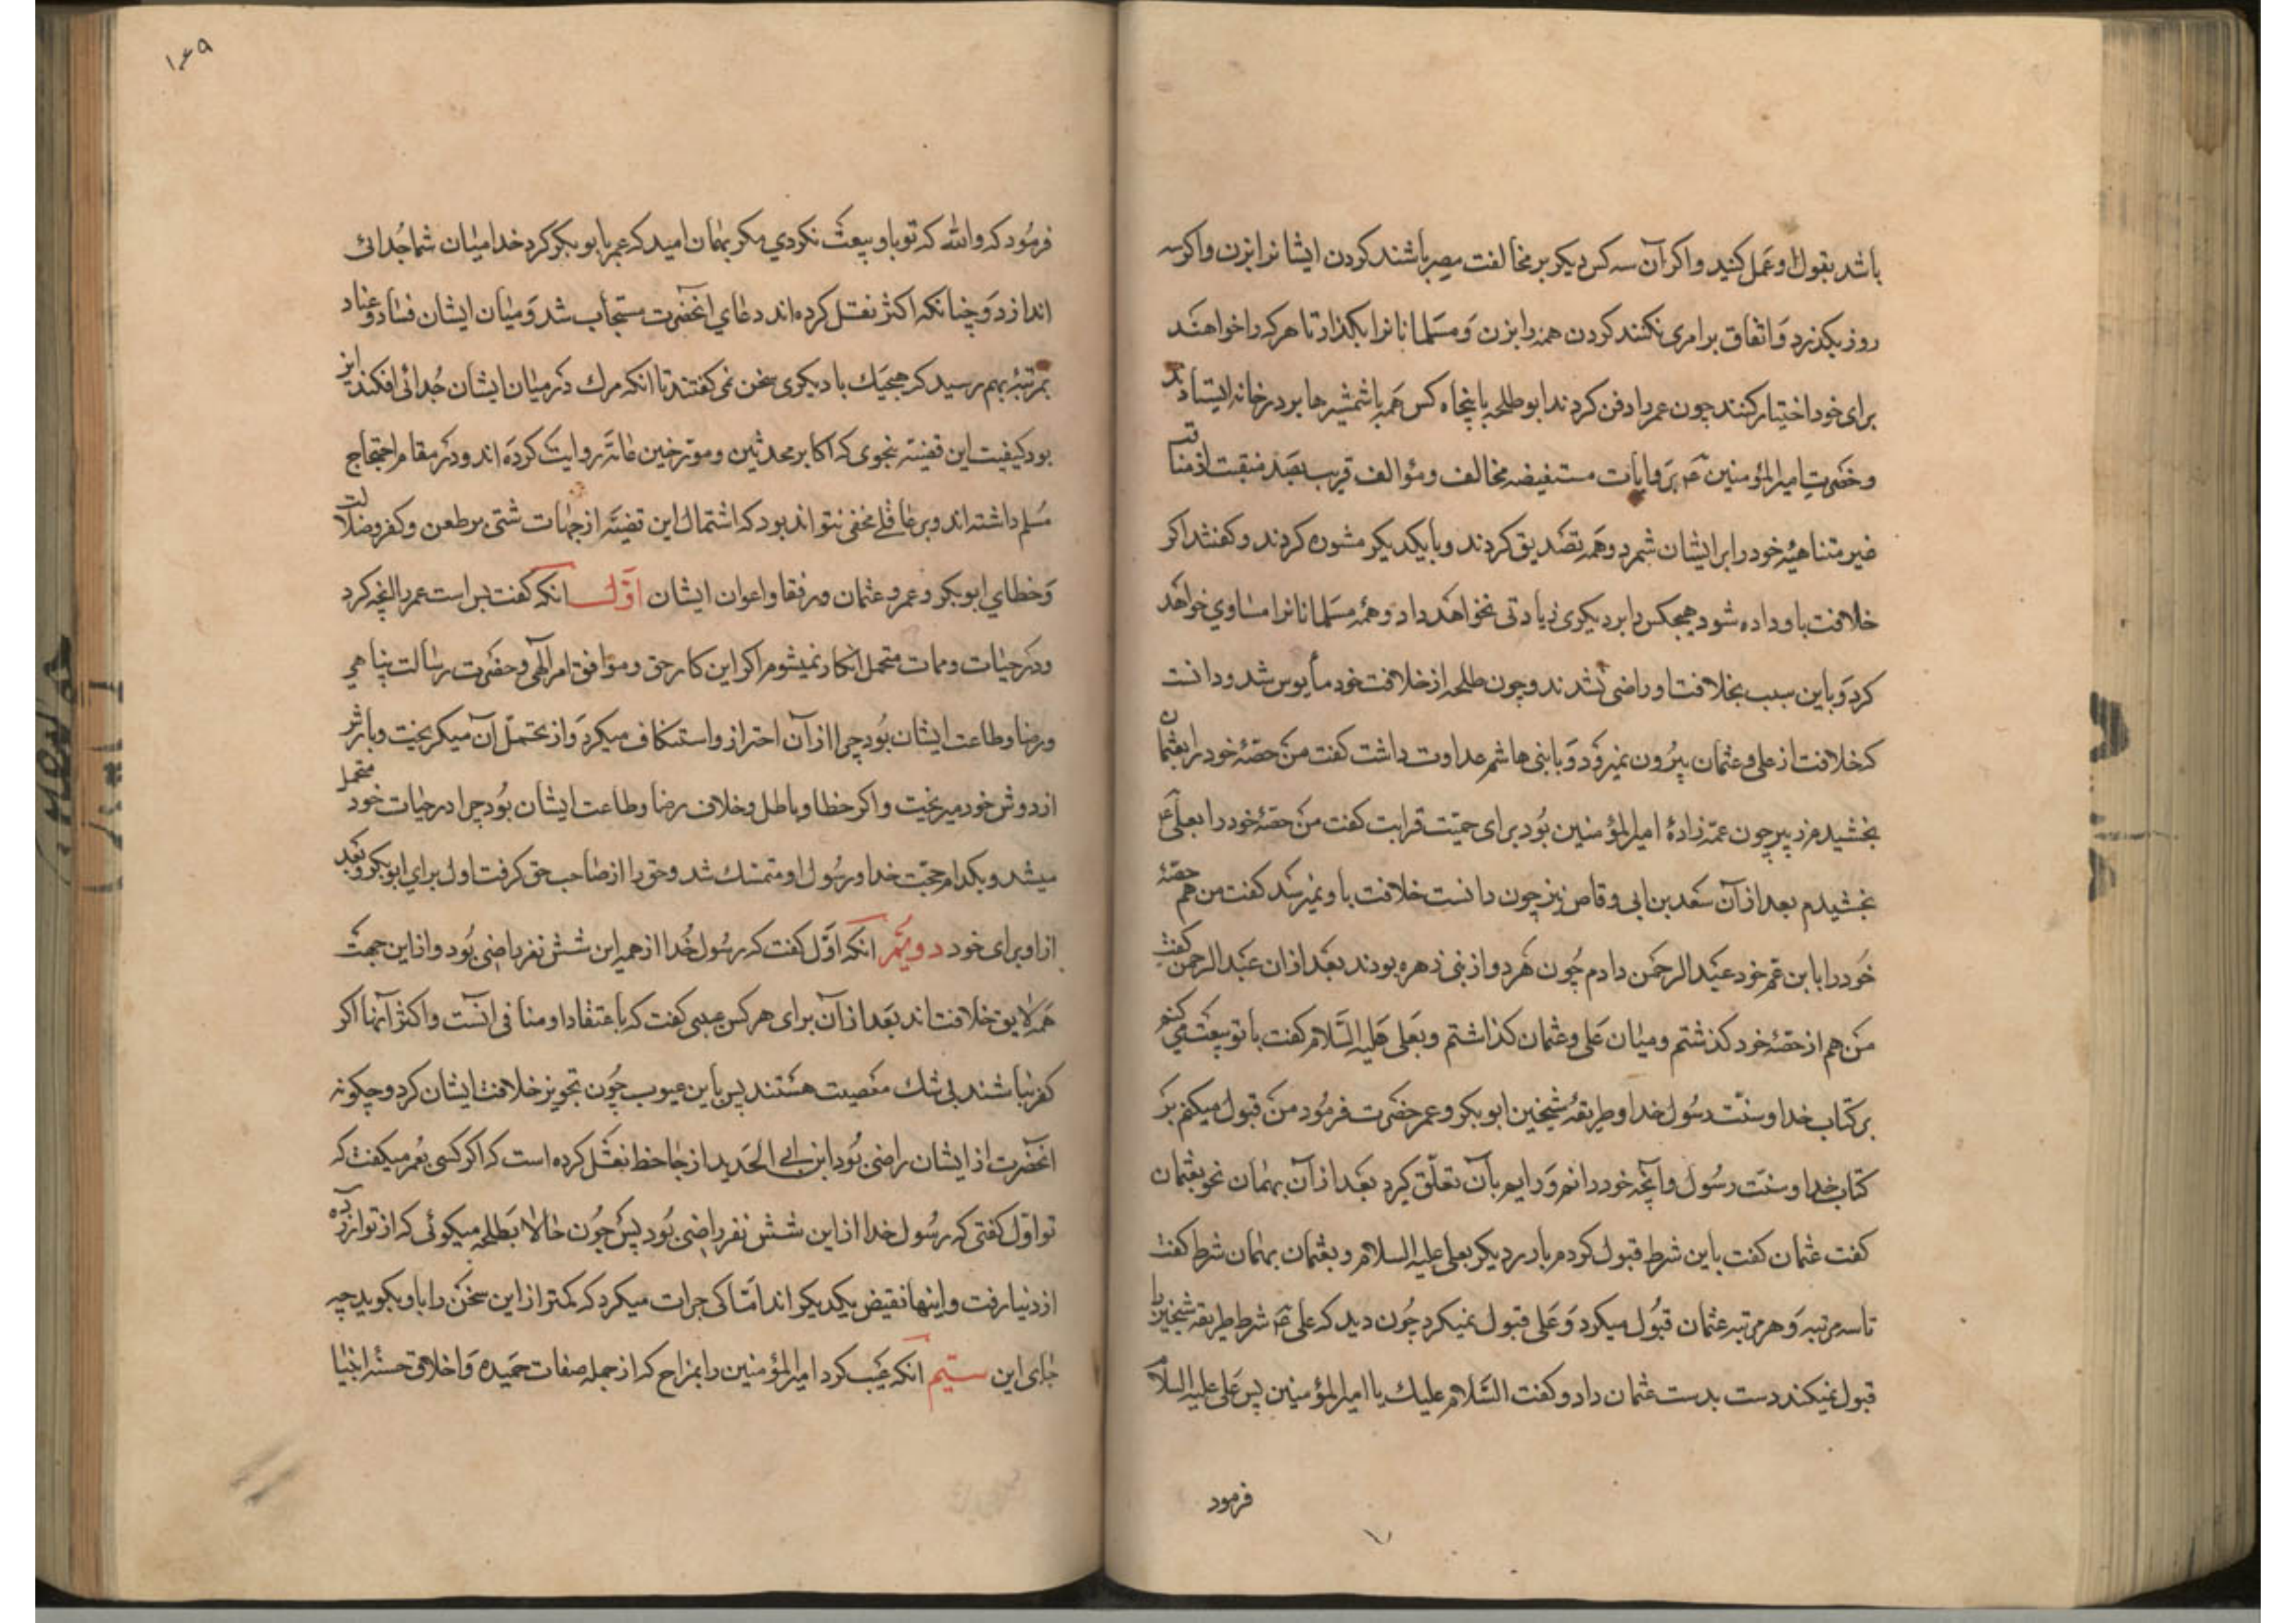 باشد بقول او عمل کنید و اکر آن سه کس دیکر بر مخالفت مصر باشند کردن ایشانرا بزن و اکر سه
روز بکذرد و اتفاق بر امری نکنند کردن همه را بزن و مسلمانانرا بکذار تا هر که را خواهند
برای خود اختیار کنند چون عمر را دفن کردند ابو طلحه با پنجاه کس همه با شمشیرها بر در خانه ایستادند
و حضرت امیرالمؤمنین ع بروایات مستفیضه مخالف و مؤالف قریب بصد منقبت از مناقب
غیر متناهیۀ خود را بر ایشان شمرد و همه تصدیق کردند و با یکدیکر مشوره کردند و کفتند اکر
خلافت باو داده شود هیچکس را بر دیکری زیادتی نخواهد داد و همۀ مسلمانانرا مساوی خواهد
کرد و باین سبب بخلافت او راضی نشدند و چون طلحه از خلافت خود مأیوس شد و دانست
که خلافت از علی و عثمان بیرون نمیرود و با بنی هاشم عداوت داشت کفت من حصّۀ خود را بعثمان
بخشیدم زبیر چون عمّه زادۀ امیرالمؤمنین بود برای حمیّت قرابت کفت من حصّۀ خود را بعلی ع
بخشیدم بعد از آن سعد بن ابی وقاص نیز چون دانست خلافت باو نمیرسد کفت من هم حصّۀ
خود را با بن عم خود عبد الرحمن دادم چون هر دو از بنی زهره بودند بعد ازان عبد الرحمن کفت
من هم از حصّۀ خود کذشتم و میان علی و عثمان کذاشتم و بعلی علیه السّلام کفت با تو بیعت میکنم
بر کتاب خدا و سنّت رسول خدا و طریقۀ شیخین ابو بکر و عمر حضرت فرمود من قبول میکنم بر
کتاب خدا و سنت رسول و آنچه خود دانم و رایم بآن تعلّق کیرد بعد از آن بهمان نحو بعثمان
کفت عثمان کفت باین شرط قبول کردم بار دیکر بعلی علیه السلام و بعثمان بهمان شرط کفت
تا سه مرتبه و هر مرتبه عثمان قبول میکرد و علی قبول نمیکرد چون دید که علی ع شرط طریقه شیخین را
قبول نمیکند دست بدست عثمان داد و کفت السّلام علیک یا امیرالمؤمنین پس علی علیه السلام
فرمود
۱۴۹
فرمود که والله که تو باو بیعت نکردی مکر بهمان امید که عمر با بو بکر کرد خدا میان شما جدائی
اندازد و چنانکه اکثر نقل کرده اند دعای آنحضرت مستجاب شد و میان ایشان فساد و عناد
بمرتبۀ بهم رسید که هیچیک با دیکری سخن نمی کفتند تا انکه مرک در میان ایشان جدائی افکند این
بود کیفیت این قضیّه بنحوی که اکابر محدثین و مورّخین عامّه روایت کرده اند و در مقام احتجاج
مسلم داشته اند و بر عاقلی مخفی نتواند بود که اشتمال این قضیّه از جهات شتی بر طعن و کفر و ضلالت
و خطای ابو بکر و عمر و عثمان و رفقا و اعوان ایشان اوّل انکه کفت بس است عمر را انچه کرد
و در حیات و ممات متحمل انکار نمیشوم اکر این کار حق و موافق امر الهی و حضرت رسالت پناهی
و رضا و طاعت ایشان بود چرا از آن احتراز و استنکاف میکرد و از تحمّل آن میکریخت و بارش را
از دوش خود میریخت و اکر خطا و باطل و خلاف رضا و طاعت ایشان بود چرا در حیات خود متحمل
میشد و بکدام حجّت خدا و رسول او متمسک شد و حق را از صاحب حق کرفت اول برای ابو بکر و بعد
از او برای خود دویّم انکه اوّل کفت که رسول خدا از همه این شش نفر راضی بود و از این جهت
همه لایق خلافت اند بعد از آن برای هر کس عیبی کفت که باعتقاد او منافی انست و اکثر آنها اکر
کفر نباشند بی شک معصیت هستند پس با این عیوب چون تجویز خلافت ایشان کرد و چکونه
آنحضرت از ایشان راضی بود ابن ابی الحدید از جاحظ نقل کرده است که اکر کسی بعمر میکفت که
تو اوّل کفتی که رسول خدا از این شش نفر راضی بود پس چون حالا بطلحه میکوئی که از تو آزرده
از دنیا رفت و اینها نقیض یکدیکر اند امّا کی جرات میکرد که کمتر از این سخن را باو بکوید چه
جای این سیّم آنکه عیب کرد امیرالمؤمنین را بمزاح که از جمله صفات حمیده و اخلاق حسنۀ انبیا